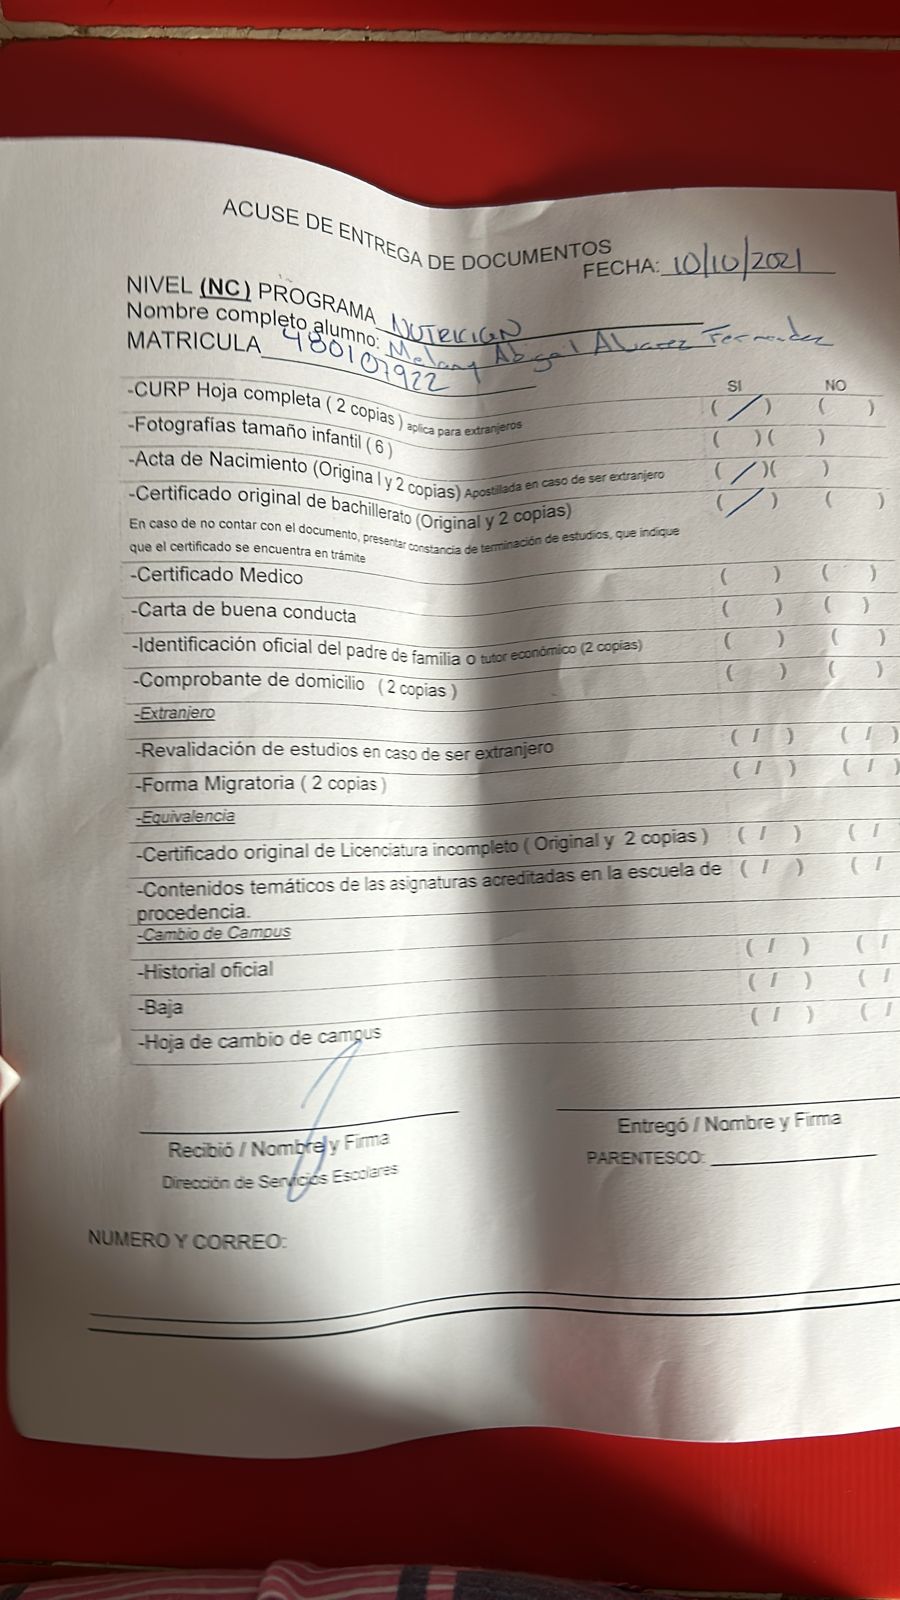 ACUSE DE ENTREGA DE DOCUMENTOS
FECHA: 10/10/2021
NIVEL (NC) PROGRAMA NUTRICION
Nombre completo alumno: Melany Abigail Alvarez Fernandez
MATRICULA 480107922
SI NO
-CURP Hoja completa ( 2 copias ) aplica para extranjeros ( / ) ( )
-Fotografías tamaño infantil ( 6 ) ( ) ( )
-Acta de Nacimiento (Origina l y 2 copias) Apostillada en caso de ser extranjero ( / ) ( )
-Certificado original de bachillerato (Original y 2 copias) ( / ) ( )
En caso de no contar con el documento, presentar constancia de terminación de estudios, que indique
que el certificado se encuentra en trámite
-Certificado Medico ( ) ( )
-Carta de buena conducta ( ) ( )
-Identificación oficial del padre de familia o tutor económico (2 copias) ( ) ( )
-Comprobante de domicilio ( 2 copias ) ( ) ( )
-Extranjero
-Revalidación de estudios en caso de ser extranjero ( / ) ( / )
-Forma Migratoria ( 2 copias ) ( / ) ( / )
-Equivalencia
-Certificado original de Licenciatura incompleto ( Original y 2 copias ) ( / ) ( /
-Contenidos temáticos de las asignaturas acreditadas en la escuela de ( / ) ( /
procedencia.
-Cambio de Campus
-Historial oficial ( / ) ( /
-Baja ( / ) ( /
-Hoja de cambio de campus ( / ) ( /
Recibió / Nombre y Firma
Dirección de Servicios Escolares
Entregó / Nombre y Firma
PARENTESCO:
NUMERO Y CORREO: